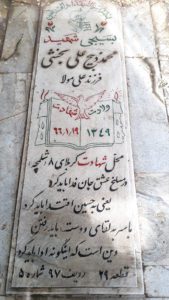 بسیجی شهید
محمد ذبیح علی بخشی
فرزند علی مولا
ولادت شهادت
۱۳۴۹ ۶۶/۱/۱۹
محل شهادت کربلای ۸ شلمچه
در مسلخ عشق جان فدا باید کرد
یعنی به حسین اقتدا باید کرد
با سر به لقای دوست باید رفتن
دین است که اینگونه ادا باید کرد
قطعه ۲۹ ردیف ۹۷ شماره ۵